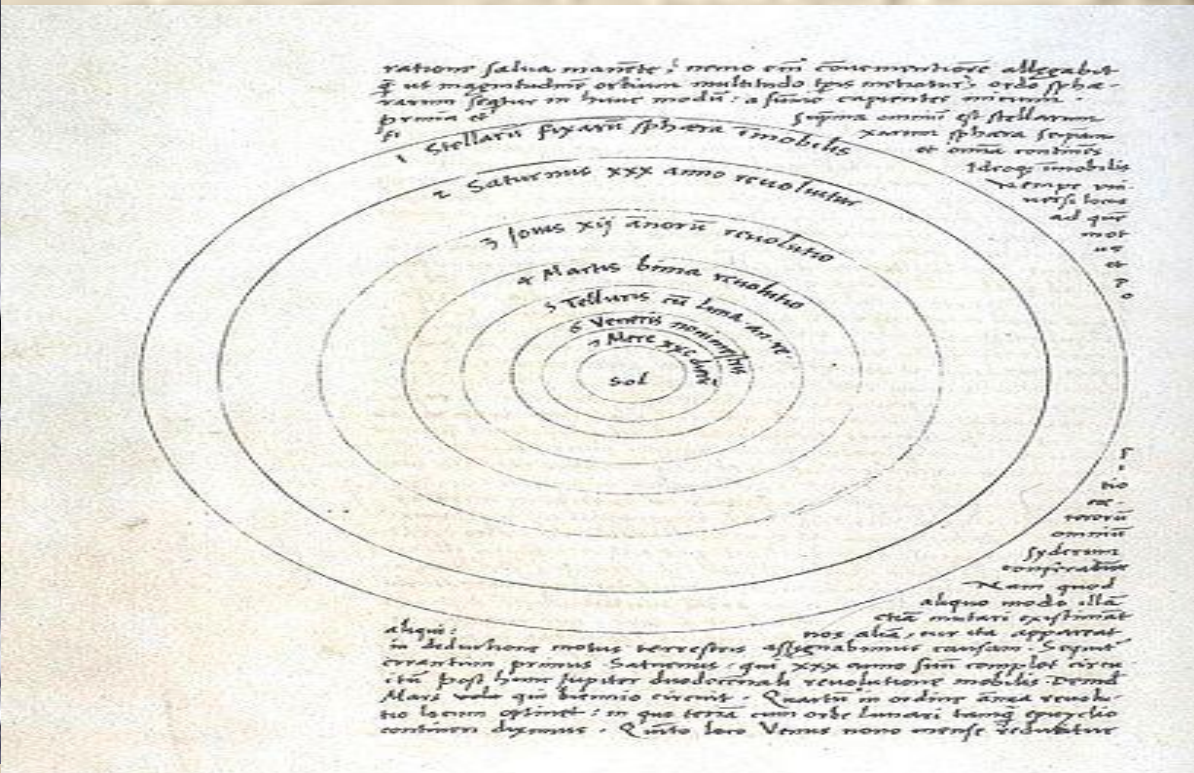 ratione salva manēte: nemo em̄ cōvenientiorē allegabit
q̄ ut magnitudinē orbium multitudo tp̄is metiatur: ordo sphæ-
rarum sequitur in hunc modū: a sūmo capientes initium.
prima et suprema omniū est stellarum
fi xarum sphæra seipsam
et omnia continēs
Ideoqꝫ īmobilis
Nempe uni
versi locus
ad quē
mot
us
et
p o
1 Stellarū fixarū sphæra īmobilis
2 Saturnus xxx anno revolvitur
3 Jovis xij ānorū revolutio
4 Martis bima revolutio
5 Telluris cū luna an re
6 Veneris nonimestris
7 Merc xxc dierū
Sol
s
i
tio
cæ-
terorū
omniū
syderum
conferatur
Nam quod
aliquo modo illā
etiā mutari existimāt
aliqui: nos aliā, cur ita appareat
in deductione motus terrestris assignabimus causam. Sequit
errantium primus Saturnus: qui xxx anno suū complet circu
itū post hunc Jupiter duodecennali revolutione mobilis Deinde
Mars qui biennio circuit. Quartū in ordine ānua revolu-
tio locum optinet: in quo terrā cum orbe lunari tamq̄ epicyclio
contineri diximus. Quinto loco Venus nono mense reducitur